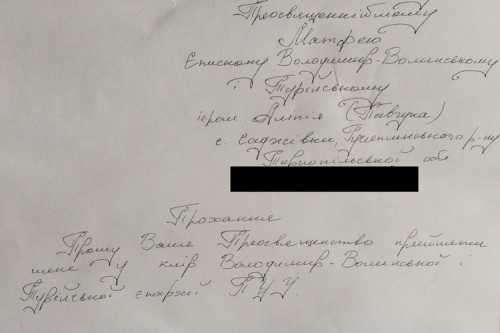 Преосвященнійшому
Матфею
Єпископу Володимир-Волинському
і Турійському
ієром
с. Саджівки, Гусятинського р-ну
Тернопільської обл
Прохання
Прошу Ваше Преосвященство прийняти
мене у клір Володимир-Волинської і
Турійської єпархії П У У.